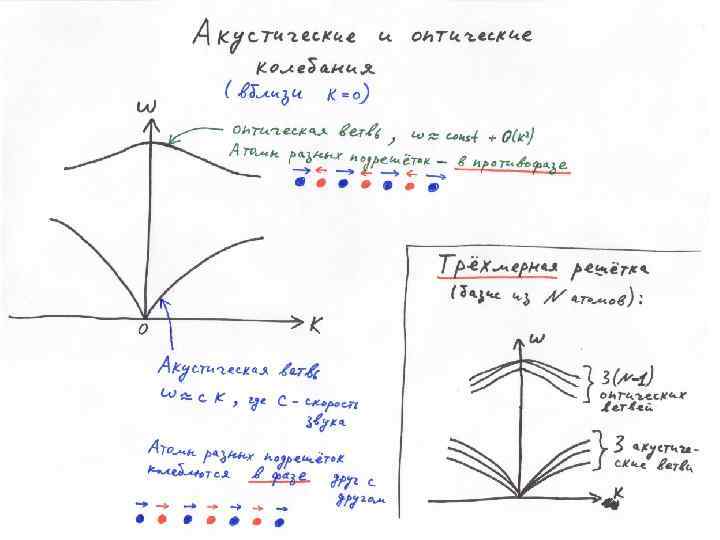 Акустические и оптические
колебания
(вблизи K=0)
ω
оптическая ветвь, ω ≈ const + O(K²)
Атомы разных подрешёток – в противофазе
0
K
Акустическая ветвь
ω ≈ c K, где c – скорость
звука
Атомы разных подрешёток
колеблются в фазе друг с
другом
Трёхмерная решётка
(базис из N атомов):
ω
3(N-1)
оптических
ветвей
3 акустиче-
ские ветви
K